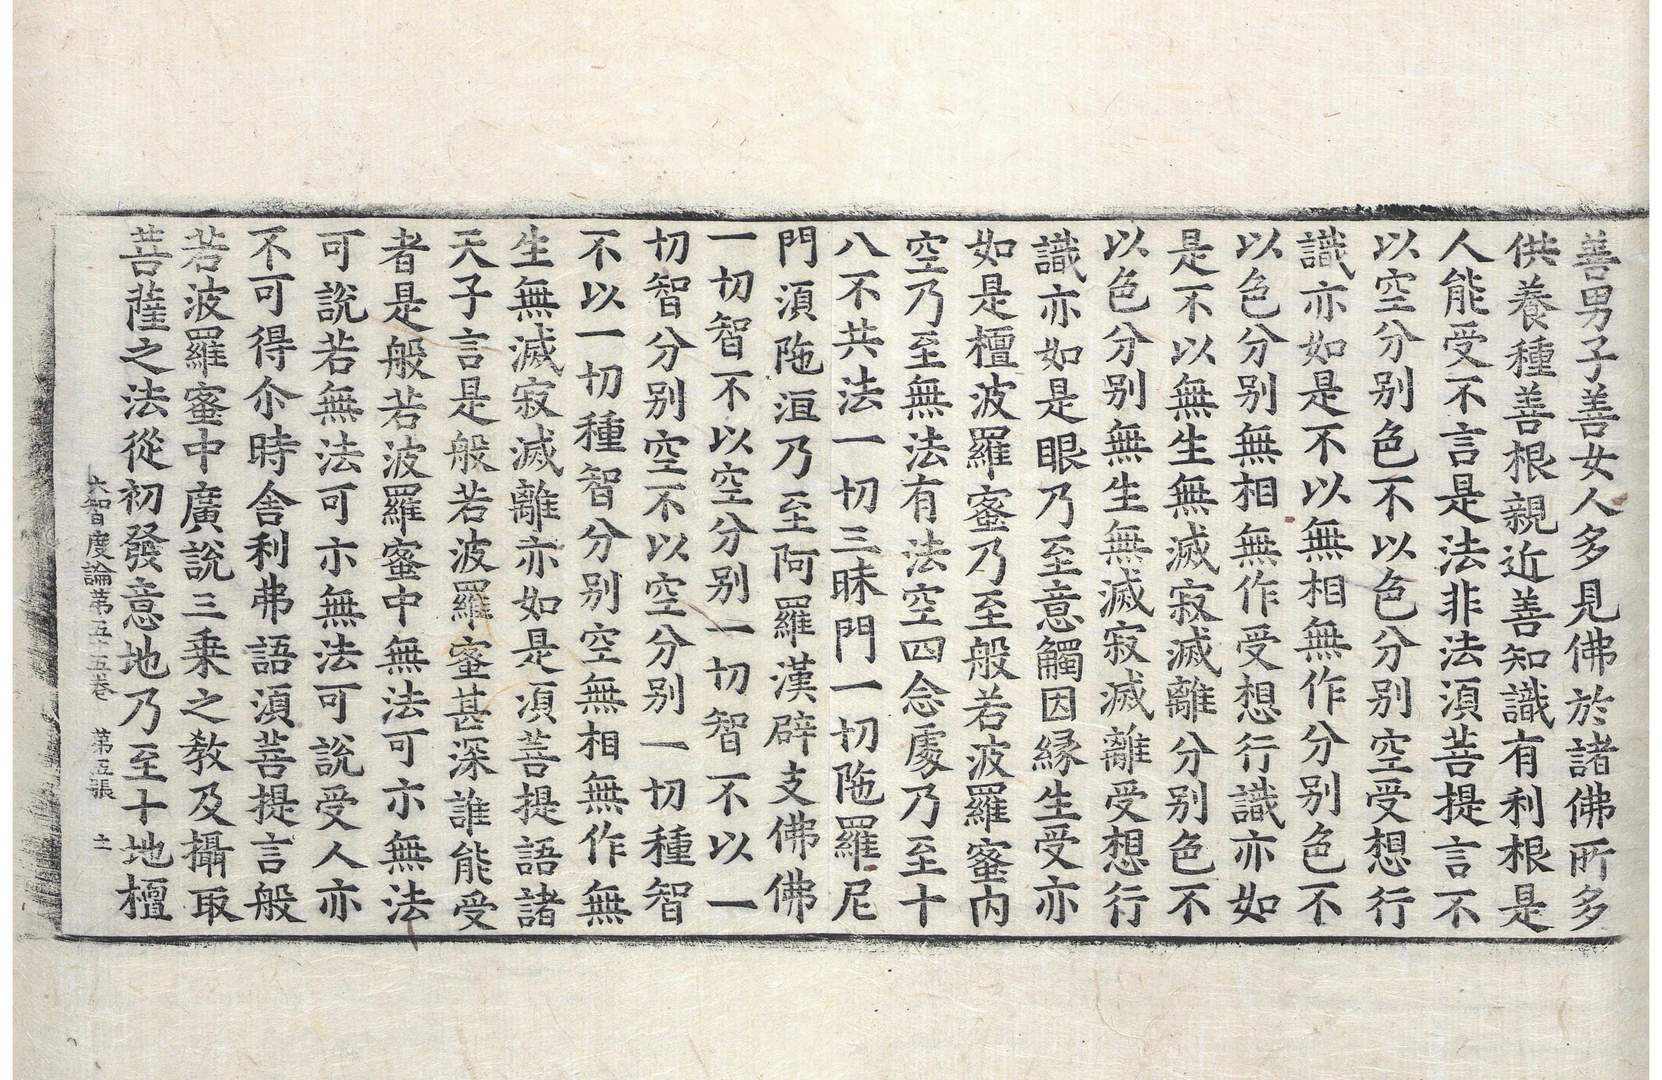 善男子善女人多見佛於諸佛所多
供養種善根親近善知識有利根是
人能受不言是法非法湏菩提言不
以空分别色不以色分别空受想行
識亦如是不以無相無作分别色不
以色分别無相無作受想行識亦如
是不以無生無滅寂滅離分别色不
以色分别無生無滅寂滅離受想行
識亦如是眼乃至意觸因縁生受亦
如是檀波羅蜜乃至般若波羅蜜内
空乃至無法有法空四念處乃至十
八不共法一切三昧門一切陁羅尼
門湏陁洹乃至阿羅漢辟支佛佛
一切智不以空分别一切智不以一
切智分别空不以空分别一切種智
不以一切種智分别空無相無作無
生無滅寂滅離亦如是湏菩提語諸
天子言是般若波羅蜜甚深誰能受
者是般若波羅蜜中無法可亦無法
可說若無法可亦無法可說受人亦
不可得尒時舍利弗語湏菩提言般
若波羅蜜中廣說三乗之教及攝取
菩薩之法從初發意地乃至十地檀
大智度論第五十五卷　第五張　士